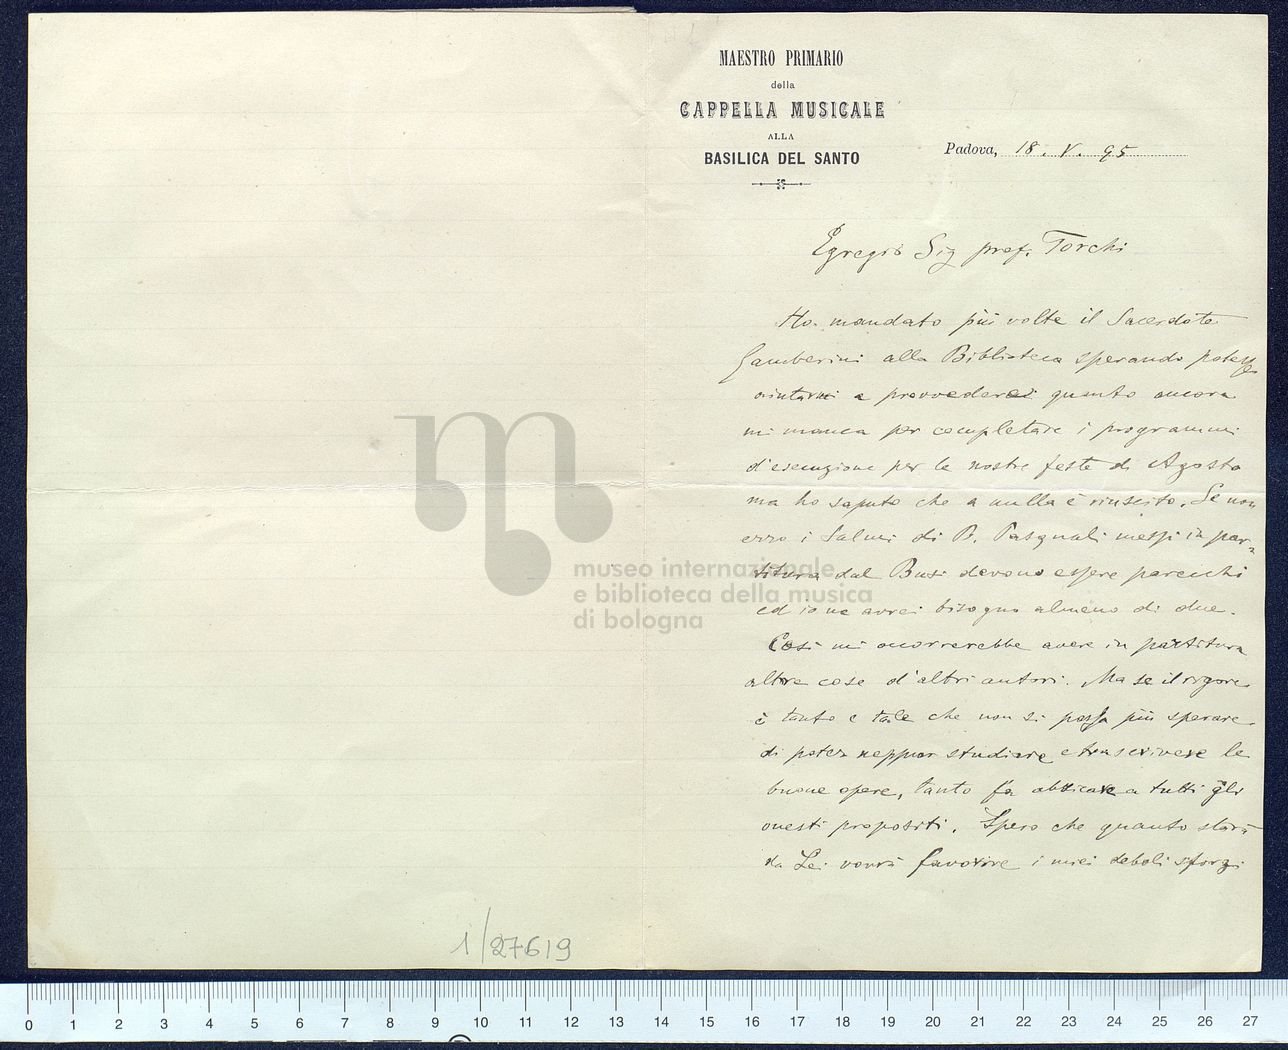 MAESTRO PRIMARIO
della
CAPPELLA MUSICALE
ALLA
BASILICA DEL SANTO
Padova, 18. V. 95
Egregio Sig prof. Torchi
Ho mandato più volte il Sacerdote
Gamberini alla Biblioteca sperando potesse
aiutarmi a provvederci quanto ancora
mi manca per completare i programmi
d'esecuzione per le nostre feste di Agosto
ma ho saputo che a nulla è riuscito. Se non
erro i Salmi di B. Pasquali messi in par-
titura dal Busi devono essere parecchi
ed io ne avrei bisogno almeno di due.
Così mi occorrerebbe avere in partitura
altre cose d'altri autori. Ma se il rigore
è tanto e tale che non si possa più sperare
di poter neppur studiare e trascrivere le
buone opere, tanto fa abdicare a tutti gli
onesti propositi. Spero che quanto starà
da Lei vorrà favorire i miei deboli sforzi
museo internazionale
e biblioteca della musica
di bologna
1/27619
0 1 2 3 4 5 6 7 8 9 10 11 12 13 14 15 16 17 18 19 20 21 22 23 24 25 26 27